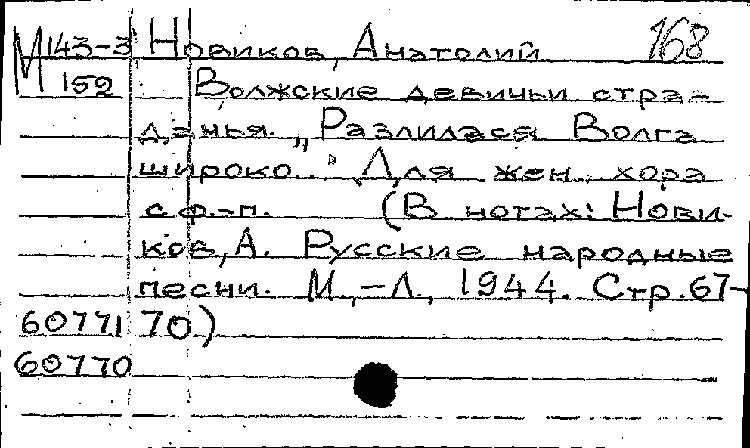 М 143-3 Новиков, Анатолий 168
152 Волжские девичьи стра-
данья. „Разлилася Волга
широко..." Для жен. хора
с ф.-п. (В нотах: Нови-
ков, А. Русские народные
песни. М.,-Л., 1944. Стр. 67-
60771 70.)
60770